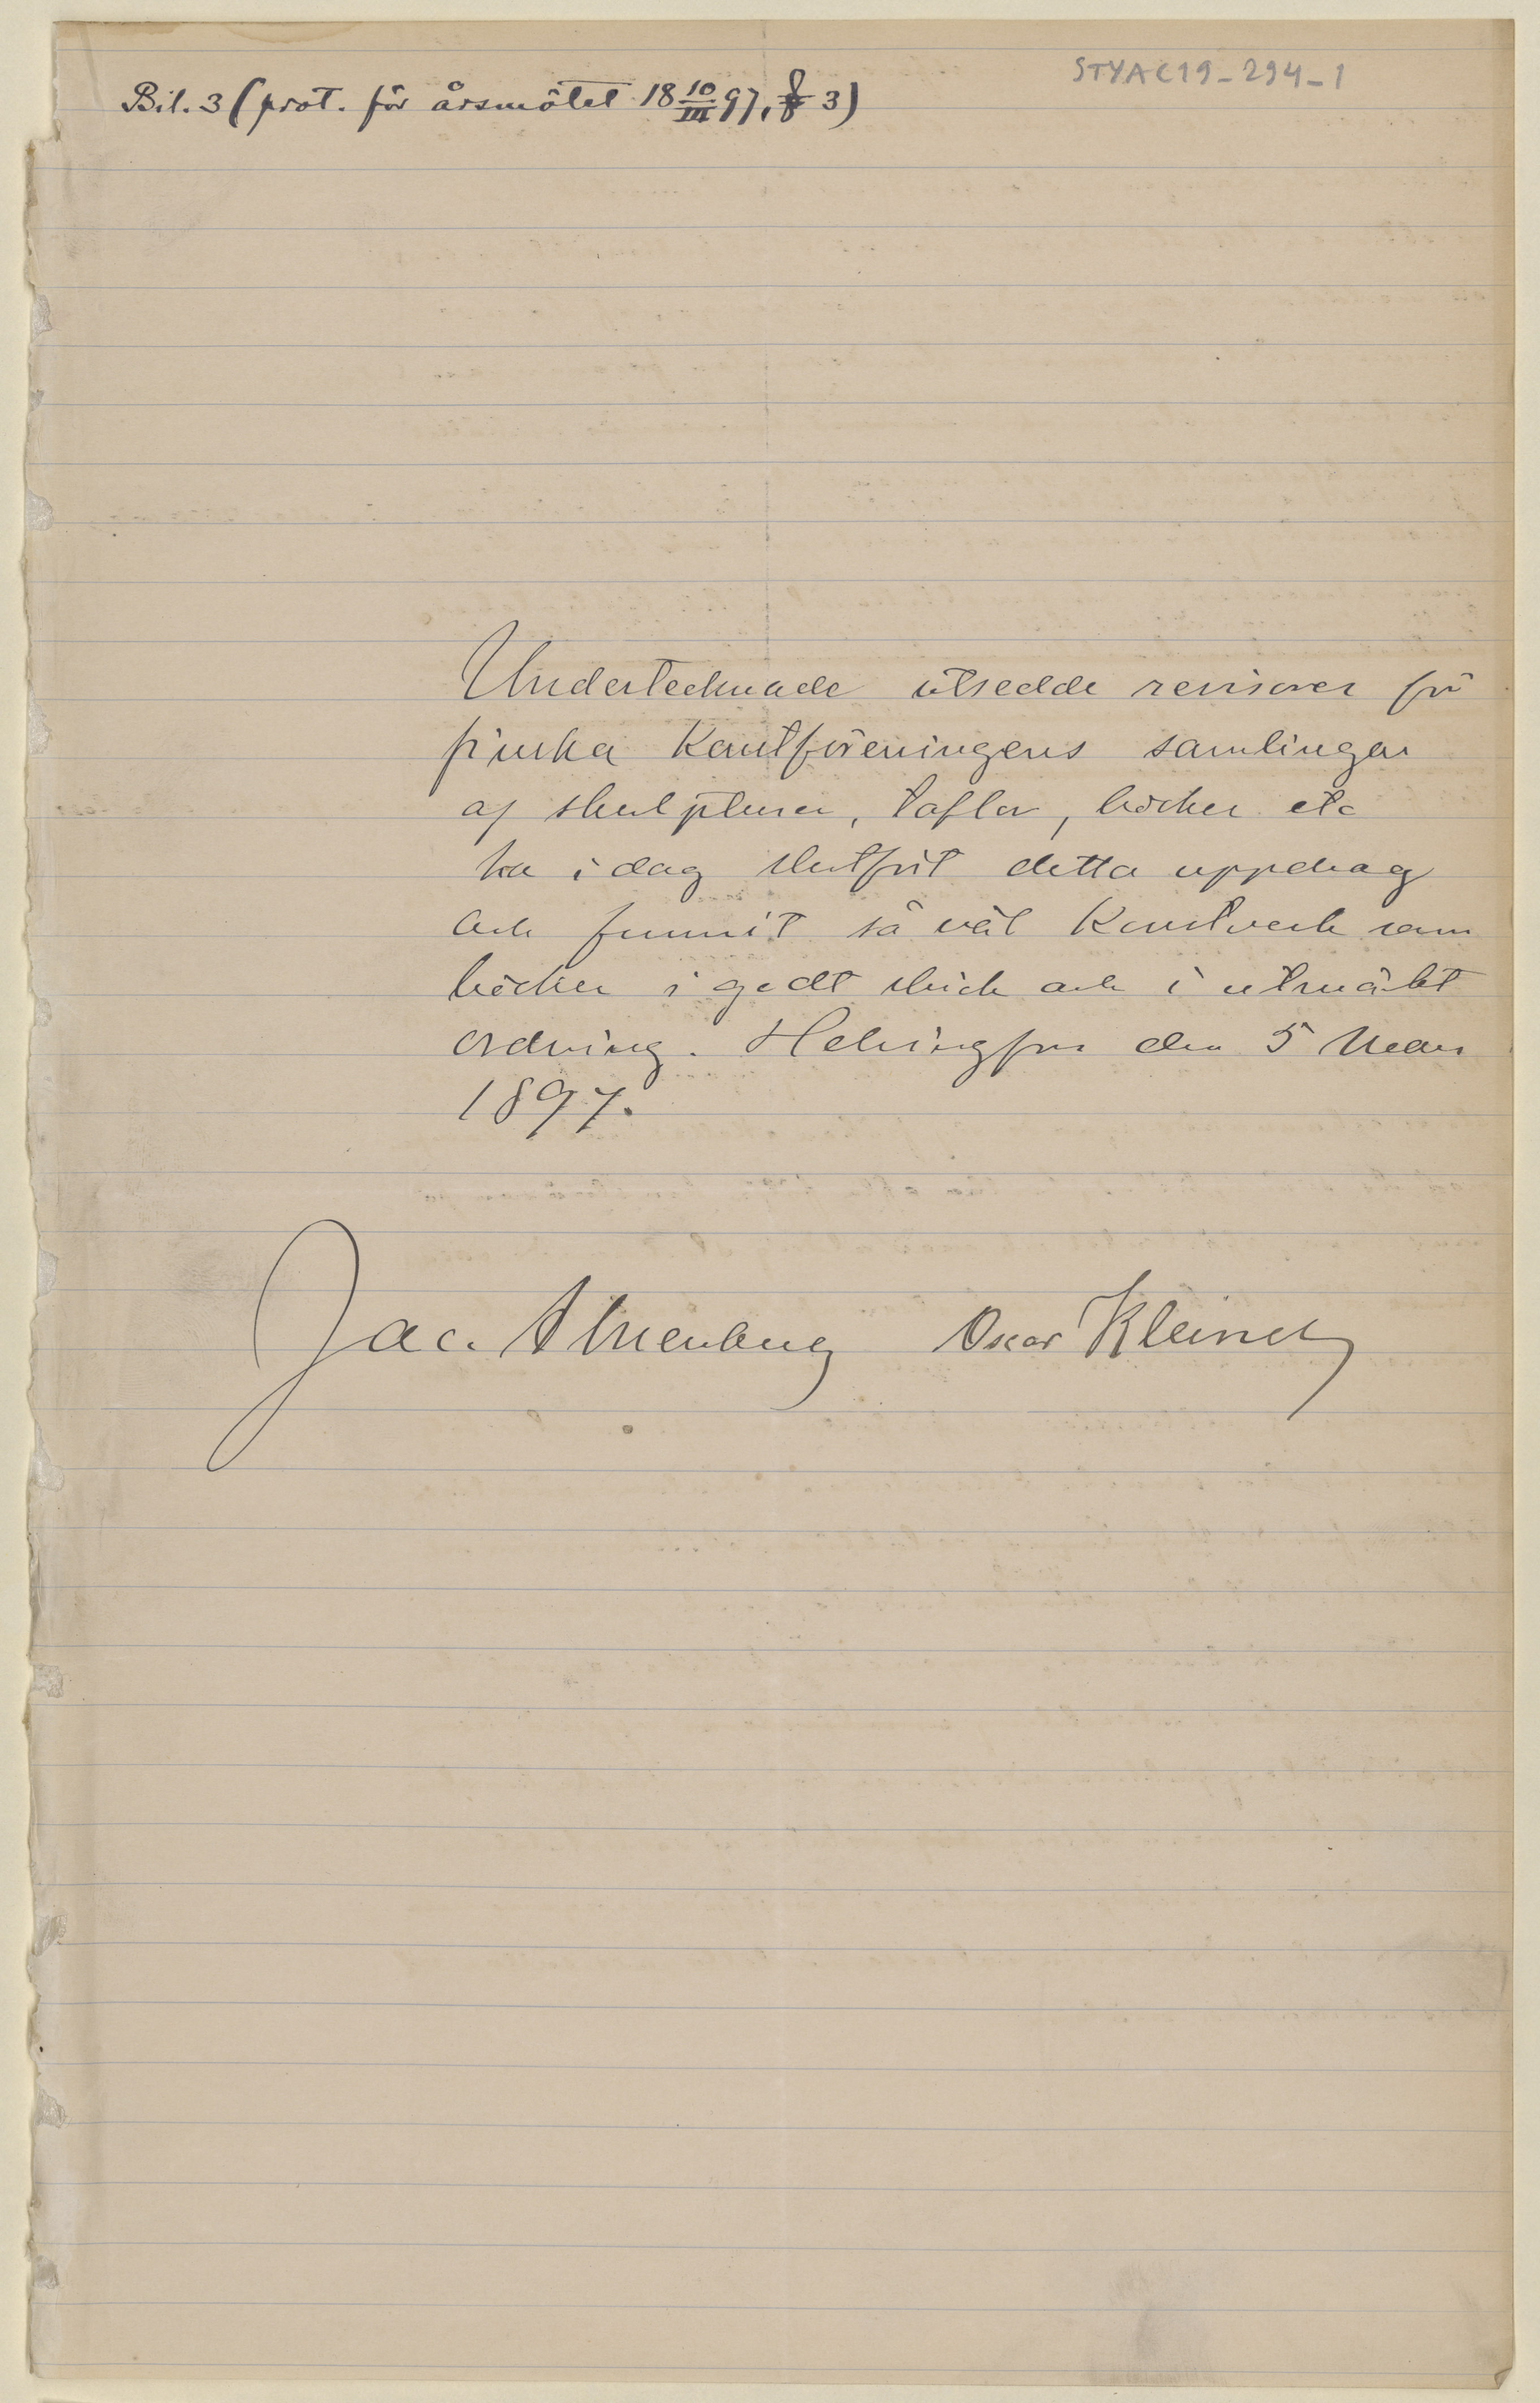 STYA C19-294-1
Bil. 3 (prot. för årsmötet 18 10/III 97, § 3)
Undertecknade utsedde revisorer för
finska Konstföreningens samlingar
af skulpturer, taflor, böcker etc
ha i dag slutfört detta uppdrag
och funnit så väl Konstverk som
böcker i godt skick och i utmärkt
ordning. Helsingfors den 5 Mars
1897.
Jac. Ahrenberg Oscar Kleineh